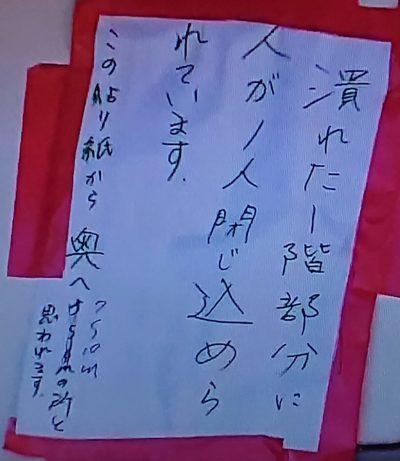 潰れた1階部分に
人が1人閉じ込めら
れています.
この貼り紙から 奥へ
の所と
思われます.